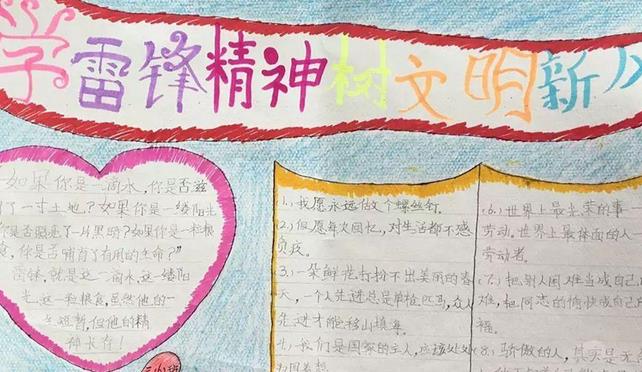 学雷锋精神树文明新
如果你是一滴水,你是否滋
了一寸土地?如果你是一缕阳光
你是否照亮了一片黑暗?如果你是一粒粮
食,你是否哺育了有用的生命?"
雷锋,就是这一滴水,这一缕阳
光,这一粒粮食,虽然他的一
生短暂,但他的精
神长存!
(1)我愿永远做个螺丝钉.
(2)但愿每次回忆,对生活都不感
负疚.
(3)一朵鲜花打扮不出美丽的春
天,一个人先进总是单枪匹马,众人
先进才能移山填海.
(4)我们是国家的主人,应该处处
为国着想
(6)世界上最光荣的事一
劳动.世界上最体面的人一
劳动者.
(7)把别人困难当成自己
难,把同志的愉快成自己
福.
(8)骄傲的人,其实是无